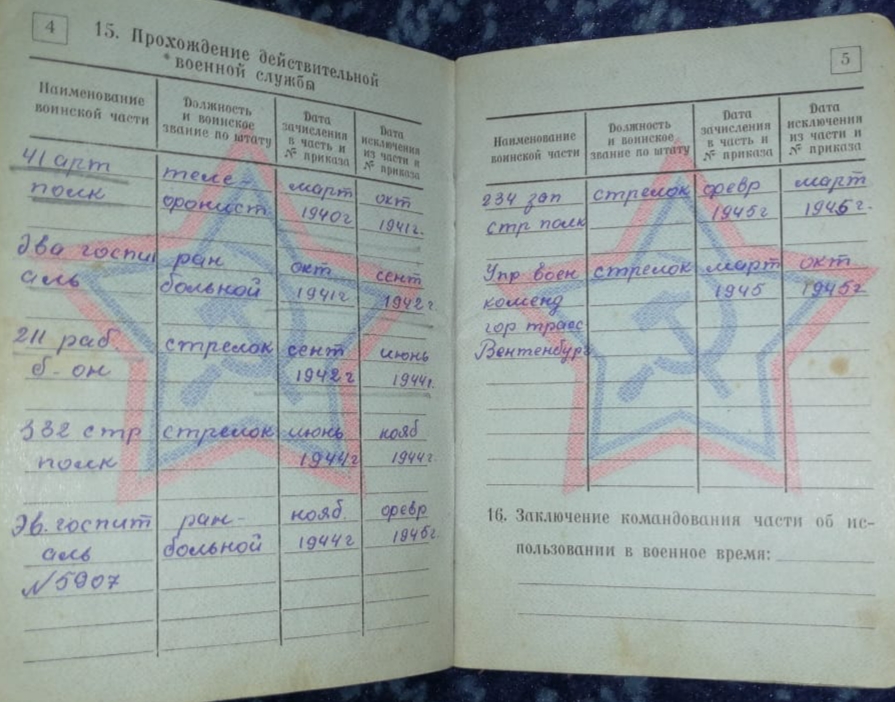 4
15. Прохождение действительной
военной службы
Наименование воинской части
Должность и воинское звание по штату
Дата зачисления в часть и № приказа
Дата исключения из части и № приказа
41 арт теле- март окт
полк фонист 1940г 1941г.
Эва госпи ран окт сент
аль больной 1941г 1942г
211 раб. стрелок сент июнь
б-он 1942г 1944г
332 стр стрелок июнь нояб
полк 1944г 1944г
Эв. госпит ран- нояб. февр
аль больной 1944г 1945г
№5907
5
Наименование воинской части
Должность и воинское звание по штату
Дата зачисления в часть и № приказа
Дата исключения из части и № приказа
234 зап стрелок февр март
стр полк 1945г 1945г
Упр воен стрелок март окт
коменд 1945 1945г
гор трасс
16. Заключение командования части об ис-
пользовании в военное время: